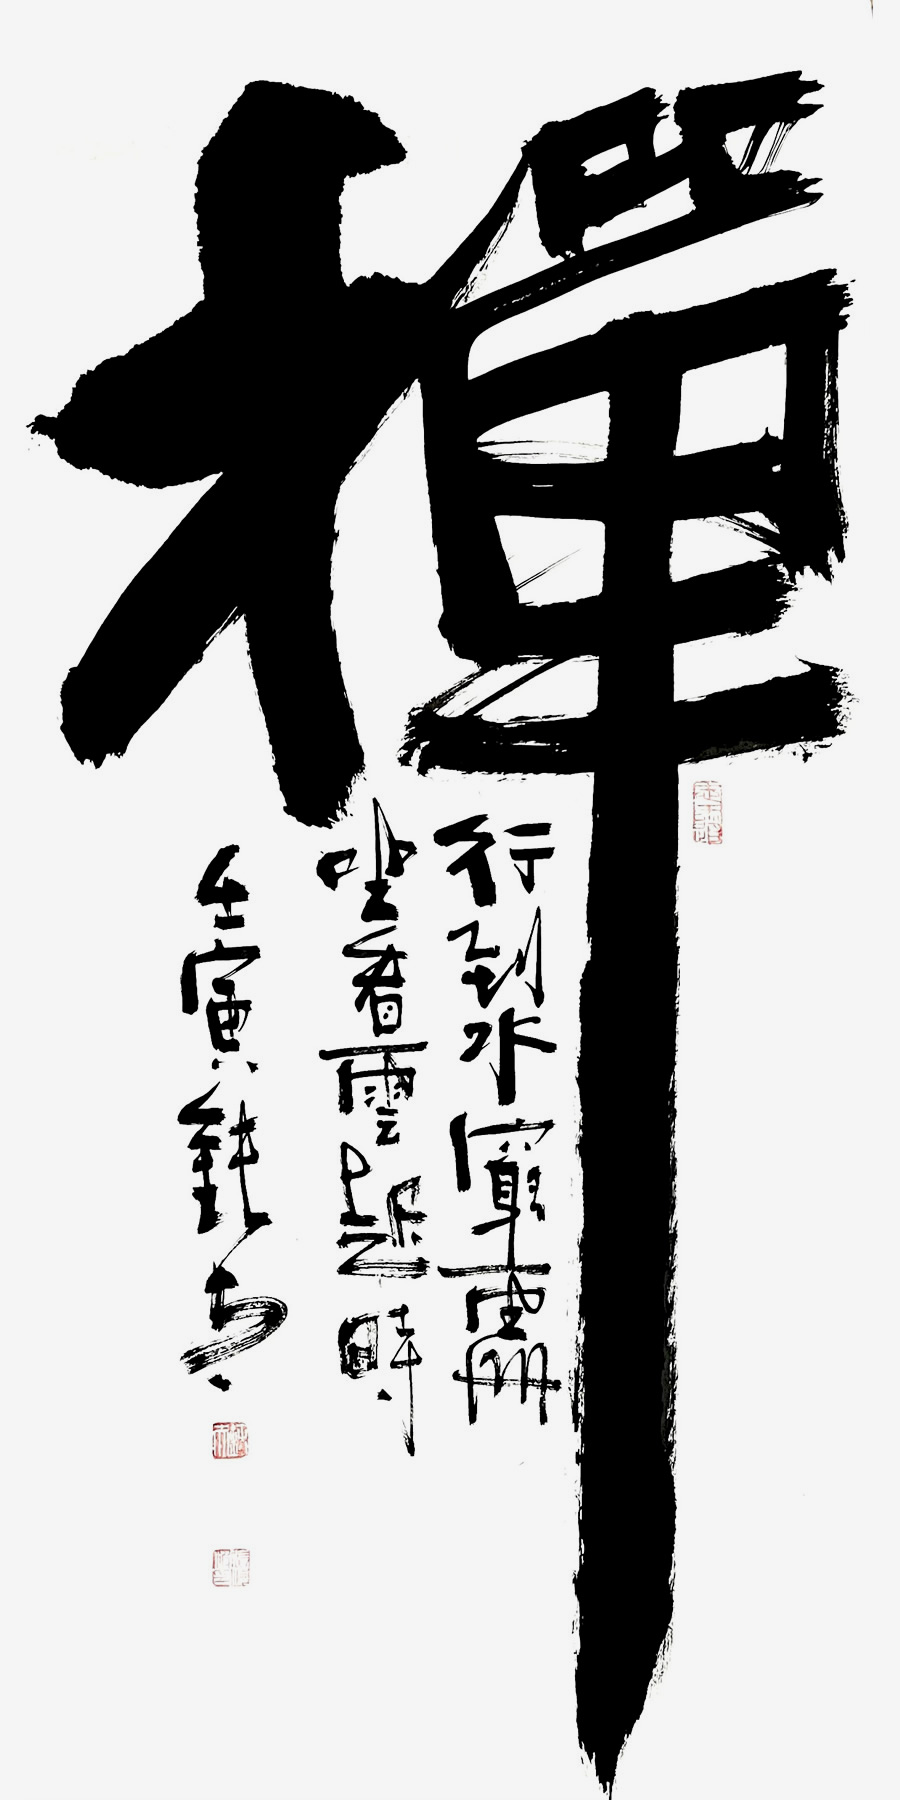 禪
行到水窮處
坐看雲起時
壬寅